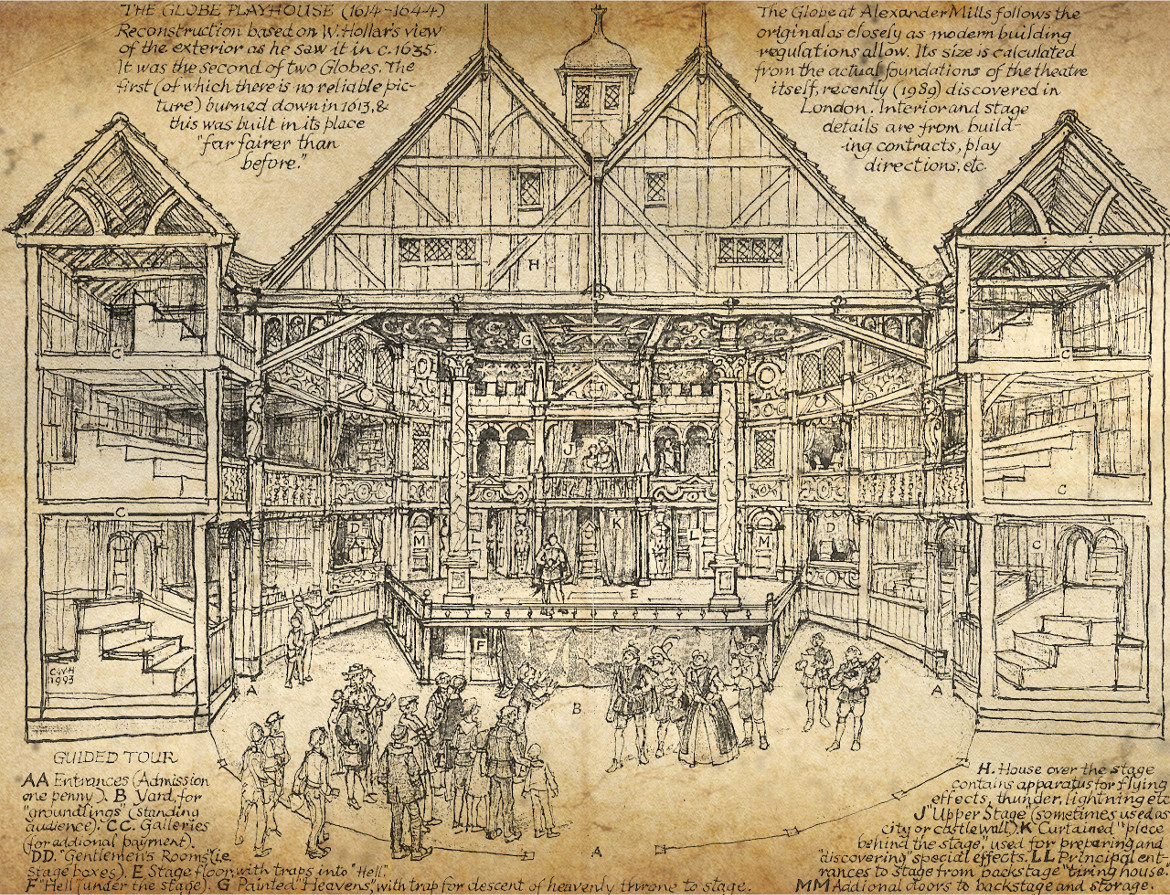 THE GLOBE PLAYHOUSE (1614-1644)
Reconstruction based on W. Hollar's view
of the exterior as he saw it in c.1635.
It was the second of two Globes. The
first (of which there is no reliable pic-
ture) burned down in 1613, &
this was built in its place
"far fairer than
before."
The Globe at Alexander Mills follows the
original as closely as modern building
regulations allow. Its size is calculated
from the actual foundations of the theatre
itself, recently (1989) discovered in
London. Interior and stage
details are from build-
-ing contracts, play
directions, etc.
H
G
C
C
J
C
C
C
C
D
M
L
K
L
M
D
E
F
C.W.H
1993
A
B
A
A
GUIDED TOUR
AA Entrances (Admission
one penny). B Yard, for
"groundlings" (standing
audience). CC. Galleries
(for addional payment).
DD. "Gentlemen's Rooms" (ie.
stage boxes). E Stage floor, with traps into "Hell".
F "Hell" (under the stage). G "Painted Heavens", with trap for descent of heavenly throne to stage.
H. House over the stage
contains apparatus for flying
effects, thunder, lightning etc
J Upper Stage (sometimes used as
city or castle wall). K Curtained "place
behind the stage," used for preparing and
"discovering" special effects. LL Principal ent-
rances to stage from backstage "tiring house"
MM Addional doors to backstage and storage.